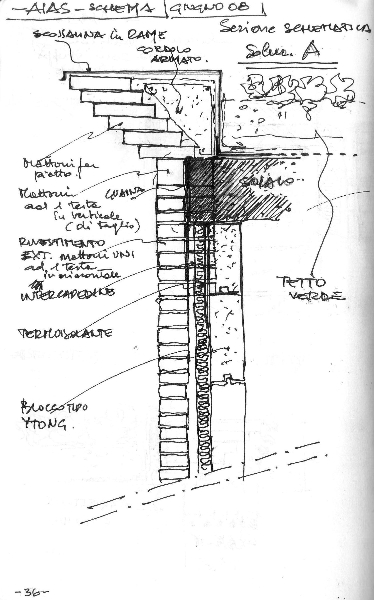 -AIAS-SCHEMA GIUGNO 08
SCOSSALINA in RAME
Sezione SCHEMATICA
CORDOLO
ARMATO.
Soluz. A
Mattoni per
piatto.
Mattoni
ad 1 testa
in verticale
(di taglio)
GUAINA
SOLAIO
RIVESTIMENTO
EXT. MATTONI UNI
ad 1 testa
in orizzontale
INTERCAPEDINE
TETTO
VERDE
TERMOISOLANTE
BLOCCO TIPO
YTONG.
-36-